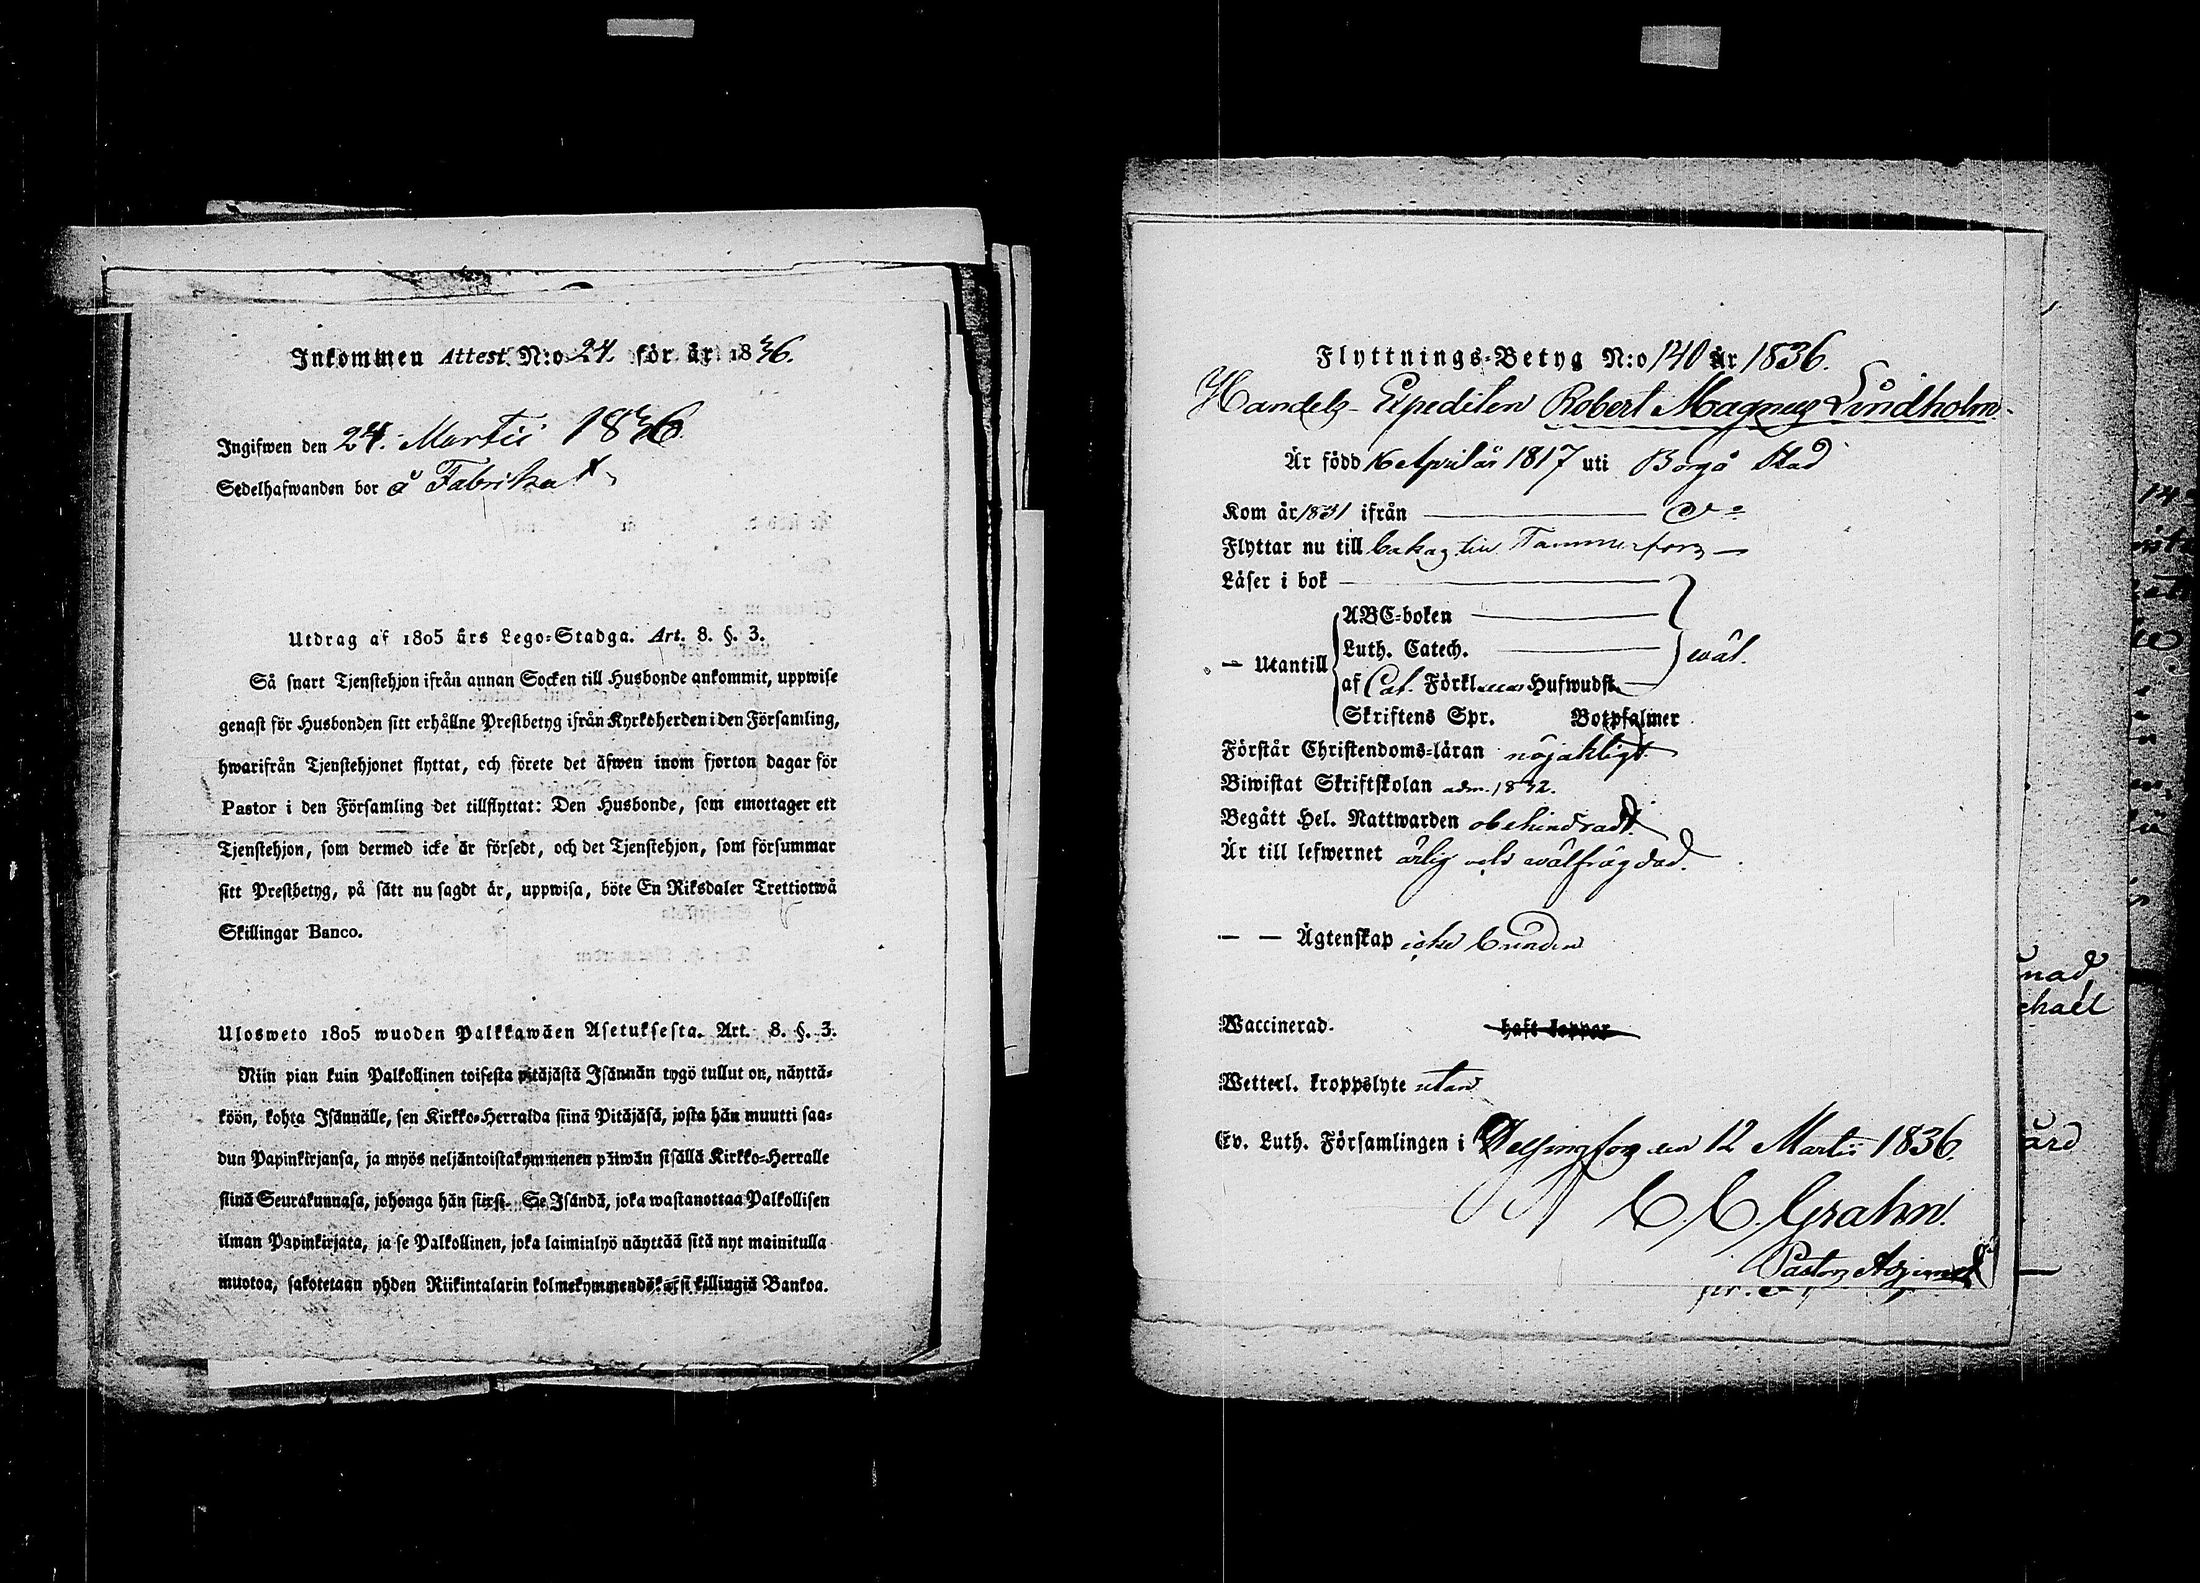 Inkommen Attest N:o 24. för år 1836.
Ingifwen den 24. Martii 1836.
Sedelhafwanden bor å Fabriken
Utdrag af 1805 års Lego-Stadga. Art. 8. §. 3.
Så snart Tjenstehjon ifrån annan Socken till Husbonde ankommit, uppwise
genast för Husbonden sitt erhållne Prestbetyg ifrån Kyrkoherden i den Församling,
hwarifrån Tjenstehjonet flyttat, och förete det äfwen inom fjorton dagar för
Pastor i den Församling det tillflyttat: Den Husbonde, som emottager ett
Tjenstehjon, som dermed icke är försedt, och det Tjenstehjon, som försummar
sitt Prestbetyg, på sätt nu sagdt är, uppwisa, böte En Riksdaler Trettiotwå
Skillingar Banco.
Ulosweto 1805 wuoden Palkkawäen Asetuksesta. Art. 8. §. 3.
Niin pian kuin Palkollinen toisesta pitäjästä Isännän tygö tullut on, näyttä-
köön, kohta Isännälle, sen Kirkko-Herralda siinä Pitäjäsä, josta hän muutti saa-
dun Papinkirjansa, ja myös neljäntoistakymmenen päiwän sisällä Kirkko-Herralle
siinä Seurakunnasa, johonga hän siirsi. Se Isändä, joka wastanottaa Palkollisen
ilman Papinkirjata, ja se Palkollinen, joka laiminlyö näyttää sitä nyt mainitulla
muotoa, sakotetaan yhden Riikintalarin kolmekymmendäkaksi killingiä Bankoa.
Flyttnings-Betyg N:o 140 år 1836.
Handels-Expediten Robert Magnus Lindholm
Är född 16 April år 1817 uti Borgå Stad
Kom år 1831 ifrån — Do
Flyttar nu till bakas till Tammerfors —
Läser i bok —
ABC-boken —
Luth. Catech. —
— Utantill
wäl.
af Cat. Förkl Hufwudst.
Skriftens Spr. Botpsalmer
Förstår Christendoms-läran nöjaktligt
Biwistat Skriftskolan adm. 1832.
Begått Hel. Nattwarden obehindradt.
Är till lefwernet ärlig och wälfrägdad.
— — Ägtenskap icke bunden
Waccinerad. haft koppor
Wetterl. kroppslyte utan
Ev. Luth. Församlingen i Helsingfors den 12 Martii 1836.
C. C. Grahn.
Pastors Adjunct
nad
chael
ård